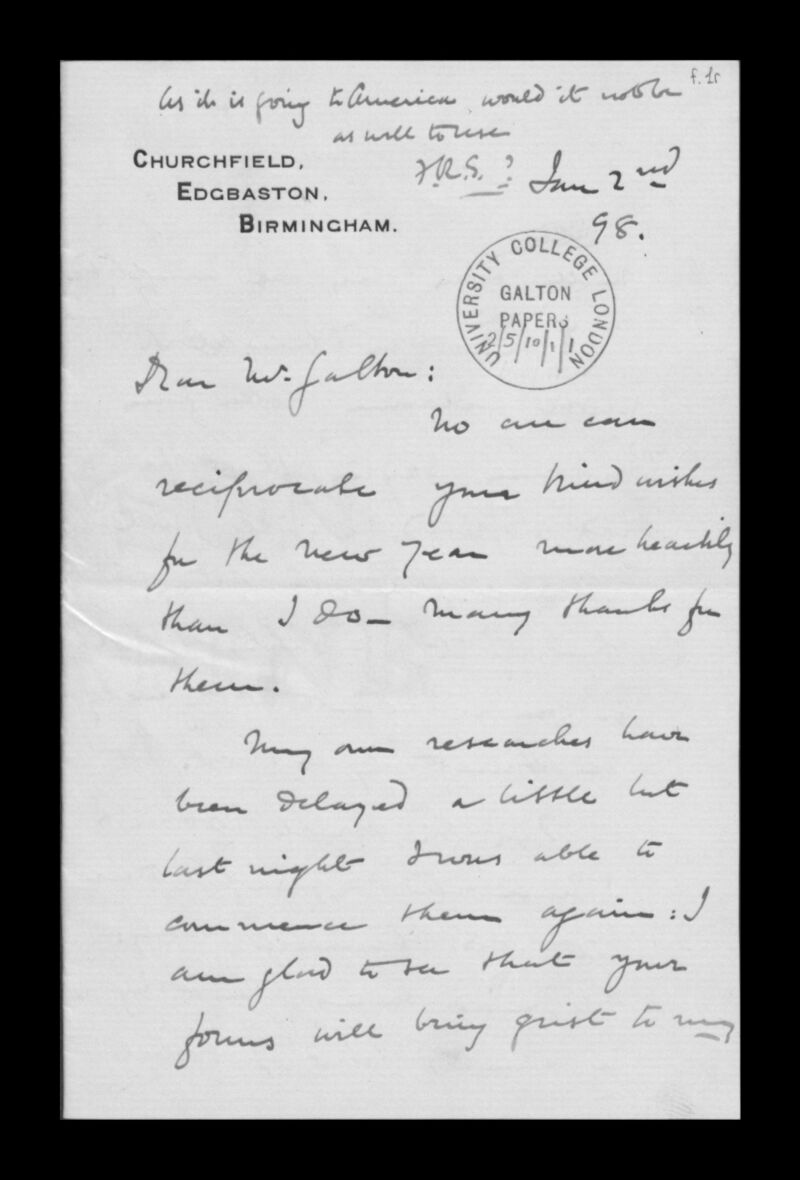 f.1r
As it is going to America would it not be
as well to use
F.R.S.?
CHURCHFIELD,
EDGBASTON,
BIRMINGHAM.
Jan 2nd
98.
UNIVERSITY COLLEGE LONDON
GALTON
PAPERS
2/5/10/1/1
Dear Mr. Galton:
No one can
reciprocate your kind wishes
for the new year more heartily
than I do — many thanks for
them.
My own researches have
been delayed a little but
last night I was able to
commence them again: I
am glad to see that your
forms will bring grist to my